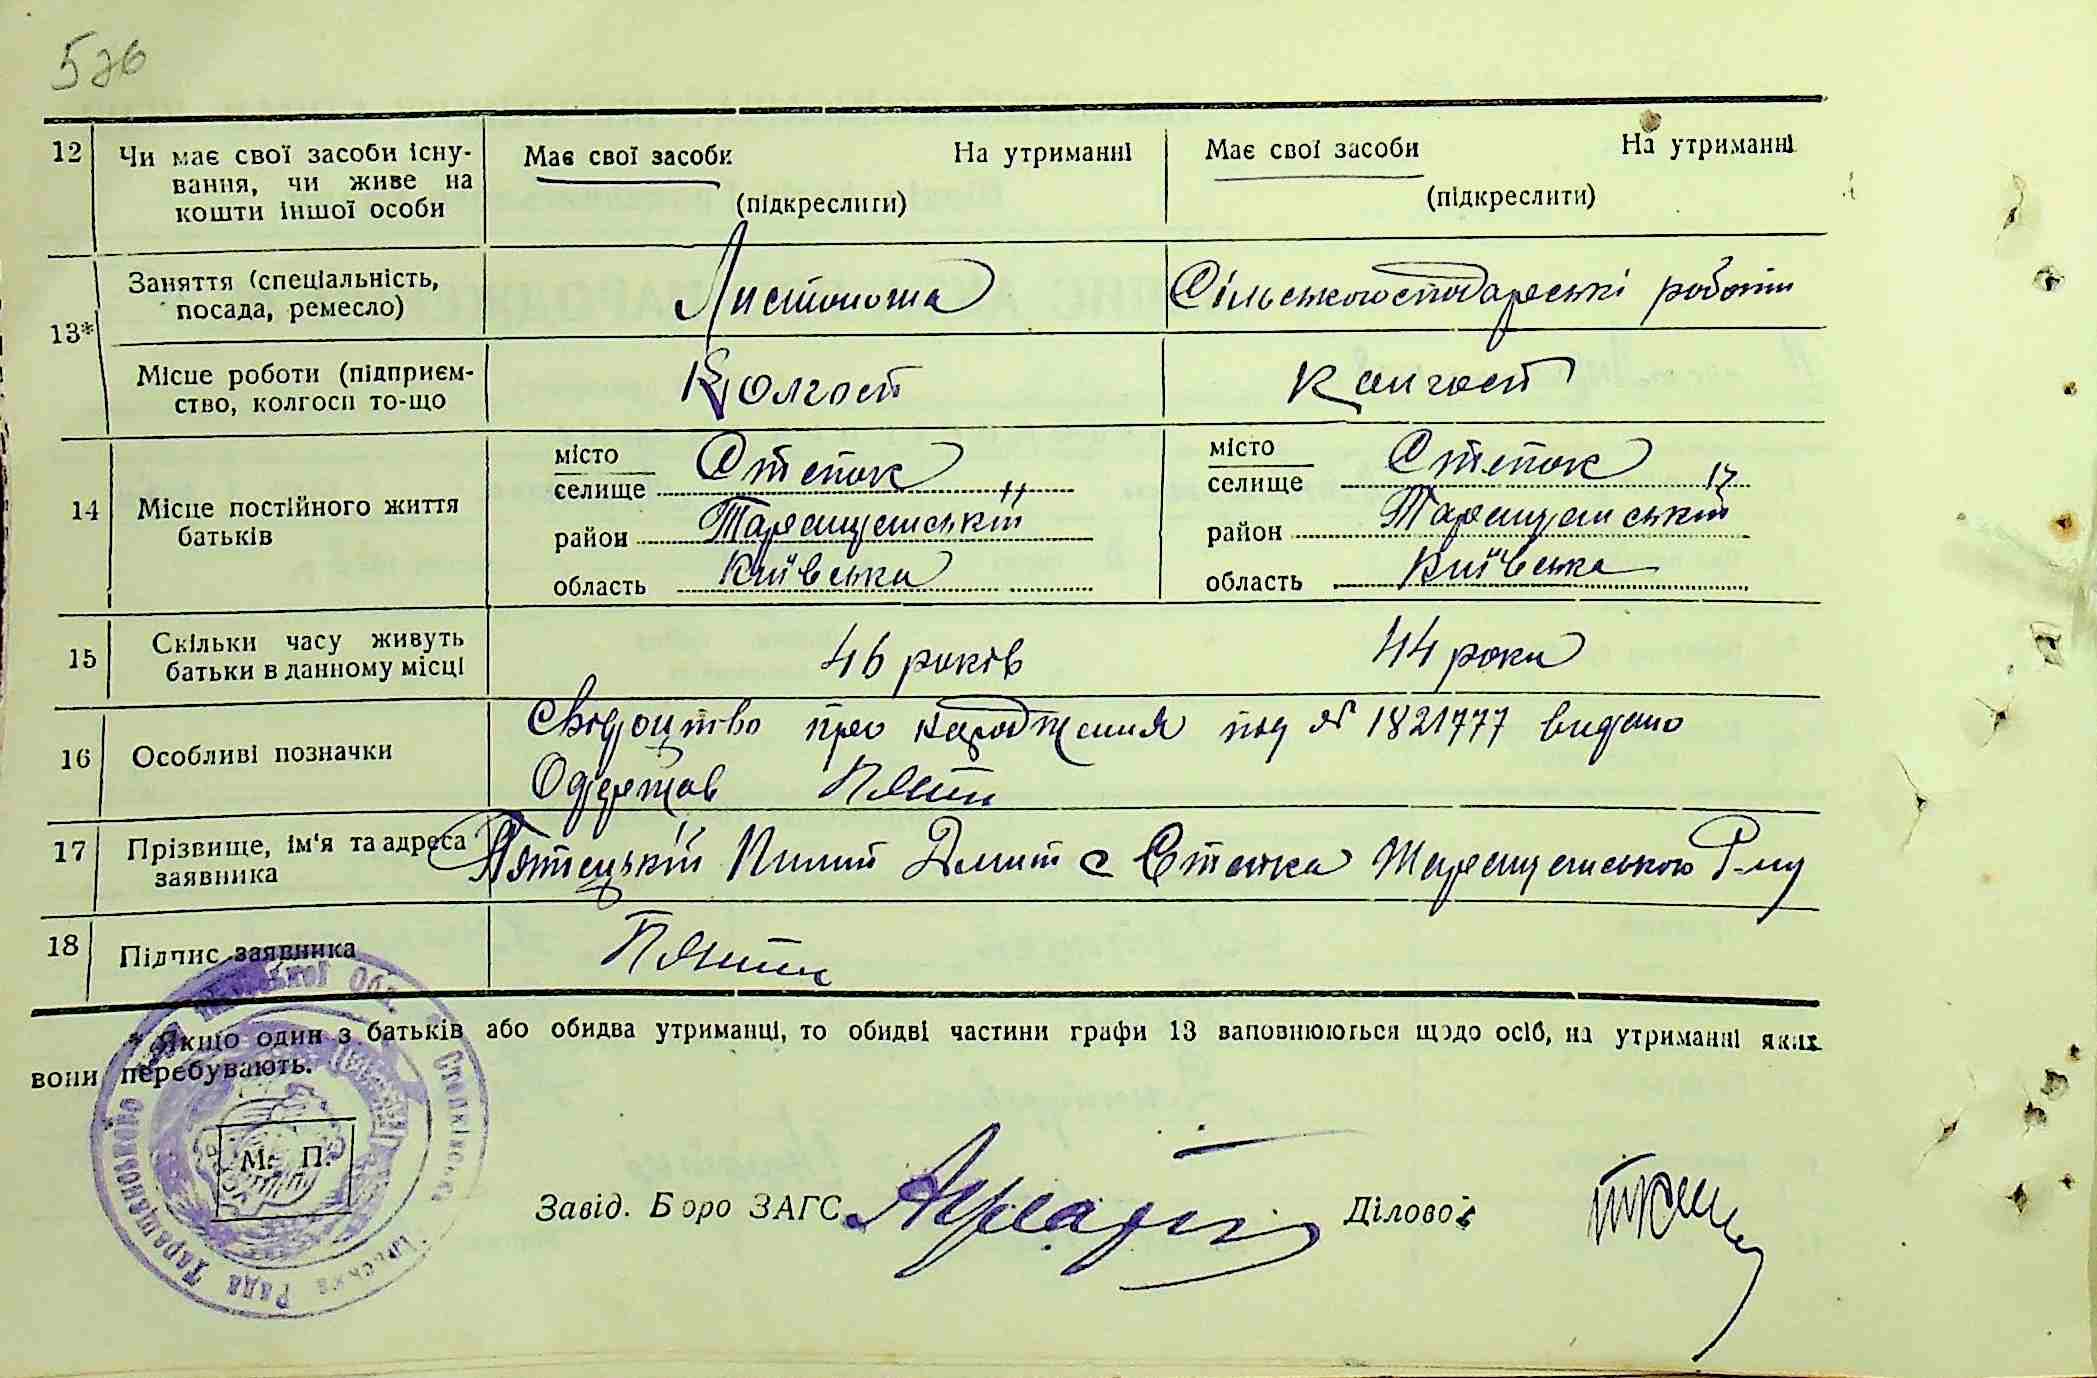 12
Чи має свої засоби існу-
вання, чи живе на
кошти іншої особи
Має свої засоби На утриманні
(підкреслити)
Має свої засоби На утриманні
(підкреслити)
13*
Заняття (спеціальність,
посада, ремесло)
Листоноша
Сільськогосподарські роботи
Місце роботи (підприєм-
ство, колгосп то-що
Колгосп
Колгосп
14
Місце постійного життя
батьків
місто
селище Степок
район Таращанський
область Київська
місто
селище Степок
район Таращанський
область Київська
15
Скільки часу живуть
батьки в данному місці
46 років
44 роки
16
Особливі позначки
Свідоцтво про народження под № 1821777 видано
Одержав
17
Прізвище, ім'я та адреса
заявника
Пилип с Степка Таращанського Р-ну
18
Підпис заявника
* Якщо один з батьків або обидва утриманці, то обидві частини графи 13 заповнюються щодо осіб, на утриманні яких
вони перебувають.
М. П.
Завід. Бюро ЗАГС
Діловод